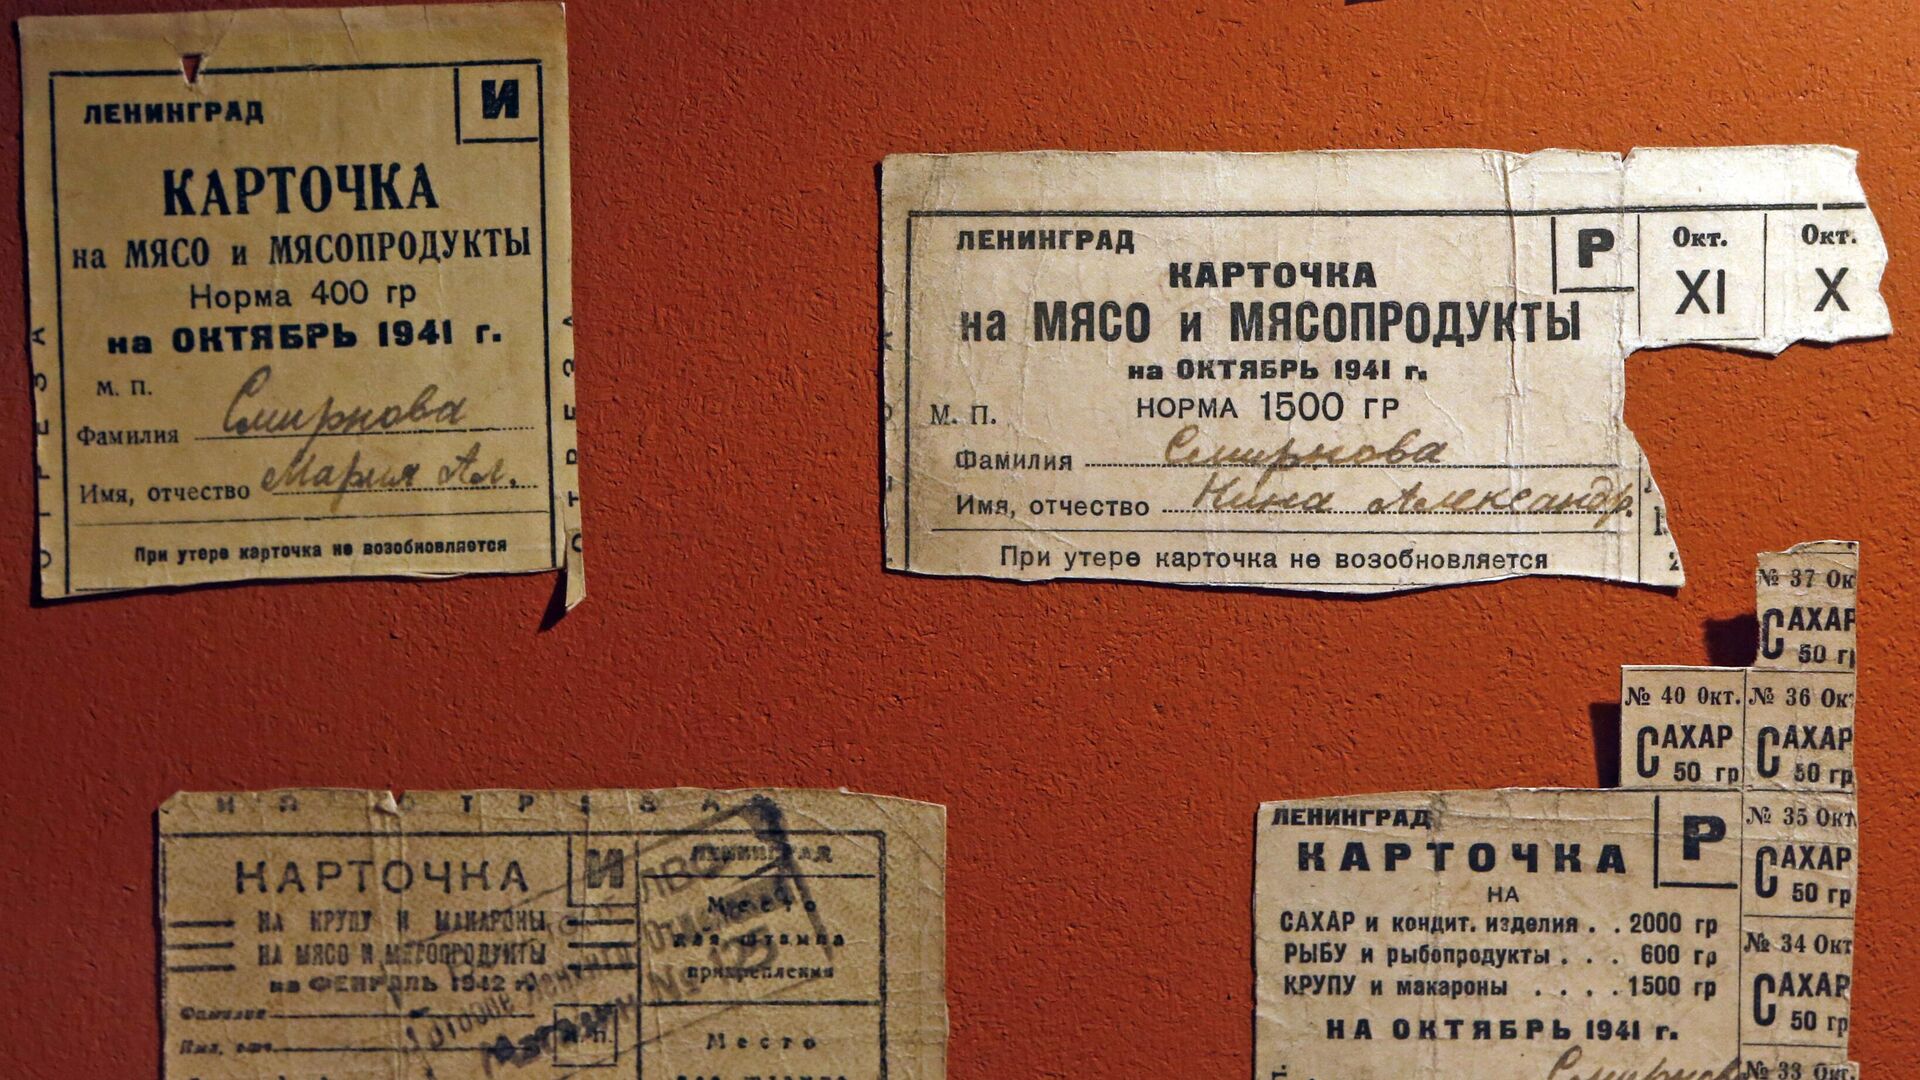 ЛЕНИНГРАД
И
КАРТОЧКА
на МЯСО и МЯСОПРОДУКТЫ
Норма 400 гр
на ОКТЯБРЬ 1941 г.
М. П.
Фамилия Смирнова
Имя, отчество Мария Ал.
При утере карточка не возобновляется
ОТРЕЗА
ОТРЕЗА
ЛЕНИНГРАД
Р
КАРТОЧКА
на МЯСО и МЯСОПРОДУКТЫ
на ОКТЯБРЬ 1941 г.
НОРМА 1500 ГР
М. П.
Фамилия Смирнова
Имя, отчество Нина Александр.
При утере карточка не возобновляется
Окт.
XI
Окт.
X
КАРТОЧКА
И
НА КРУПУ И МАКАРОНЫ
НА МЯСО И МЯСОПРОДУКТЫ
на ФЕВРАЛЬ 1942 г.
Фамилия
Имя, отч.
ЛЕНИНГРАД
Место
для штампа
прикрепления
Место
№ 125
№ 37 Ок
САХАР
50 г
№ 40 Окт.
САХАР
50 гр
№ 36 Ок
САХАР
50 гр
№ 35 Окт
САХАР
50 гр
№ 34 Окт
САХАР
50 гр
№ 33 Окт.
ЛЕНИНГРАД
Р
КАРТОЧКА
НА
САХАР и кондит. изделия . . 2000 гр
РЫБУ и рыбопродукты . . . 600 гр
КРУПУ и макароны . . . . 1500 гр
НА ОКТЯБРЬ 1941 г.
Смирнова